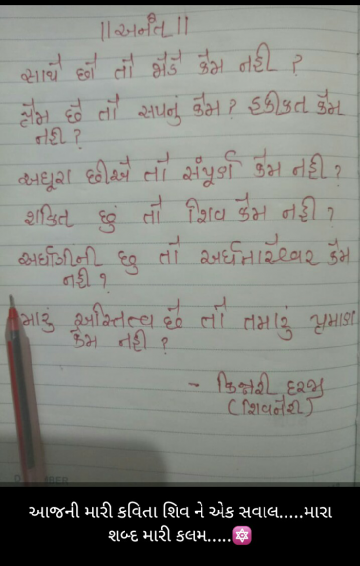 ||અનંત||
સાથે છો તો ભેડે કેમ નહી ?
પ્રેમ છે તો સપનું કેમ? હકીકત કેમ
નહી ?
અધૂરા છીએ તો સંપૂર્ણ કેમ નહી ?
શકિત છું તો શિવ કેમ નહી ?
અર્ધાગીની છુ તો અર્ધનારેશ્વર કેમ
નહી ?
મારું અસ્તિત્વ છે તો તમારું પ્રમાણ
કેમ નહી ?
- કિન્નરી દરજી
(શિવનેરી)
આજની મારી કવિતા શિવ ને એક સવાલ.....મારા
શબ્દ મારી કલમ.....🔯